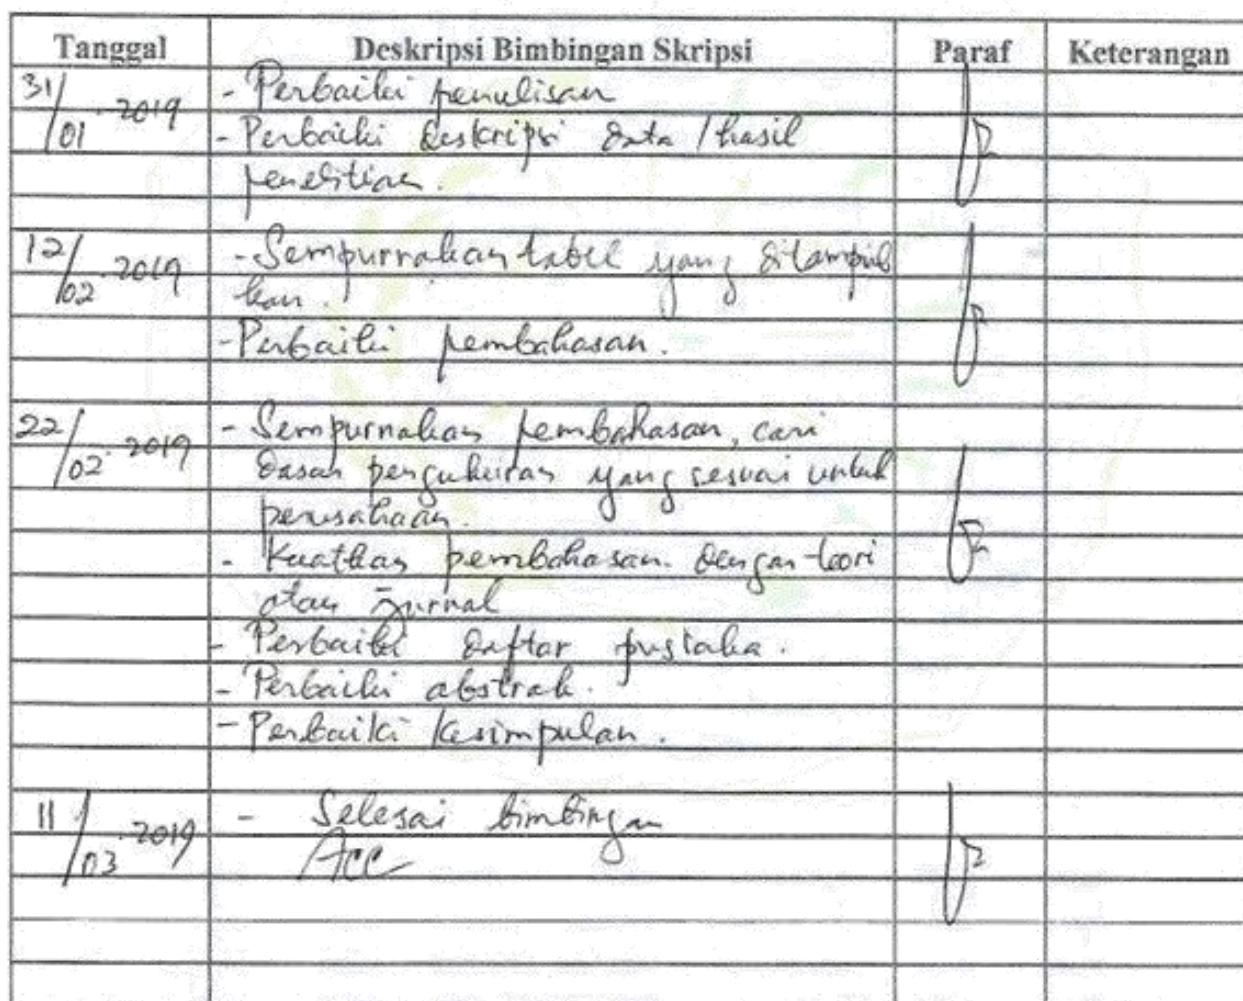 Tanggal Deskripsi Bimbingan Skripsi Paraf Keterangan
31/01 2019 - Perbaiki penulisan
- Perbaiki deskripsi data / hasil
penelitian.
12/02 2019 - Sempurnakan tabel yang ditampil
kan.
- Perbaiki pembahasan.
22/02 2019 - Sempurnakan pembahasan, cari
dasar pengukuran yang sesuai untuk
perusahaan.
- Kuatkan pembahasan dengan teori
atau jurnal
- Perbaiki daftar pustaka.
- Perbaiki abstrak.
- Perbaiki kesimpulan.
11/03 2019 - Selesai bimbingan
Acc